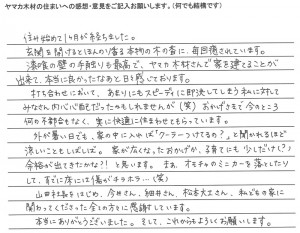 ヤマカ木材の住まいへの感想・意見をご記入お願いします。(何でも結構です)
住み始めて1ヶ月が来ました。
玄関を開けるとほんのり香る木の香に、毎回癒されています。
漆喰の壁の手触りも最高で、ヤマカ木材さんで家を建てることが
出来て、本当に良かったなあと日々感じております。
打ち合わせにおいて、あまりにもスピーディに即決してしまう私に対して
みなさん内心心配だったかもしれませんが(笑)おかげさまで今のところ
何の不都合もなく、実に快適に住まわせてもらっています。
外が暑い日でも、家の中に入れば「クーラーつけてるの?」と聞かれるほど
涼しいこともしばしば。家が広くなったおかげか、子育てにも少しだけ(?)
余裕が出てきたかな?!と思います。まぁ、オモチャのミニカーを落としたり
して、すでに床には傷がチラホラ…(笑)
山田社長をはじめ、今井さん、細井さん、松本大工さん、私どもの家に
関わってくださった全ての方々に感謝しています。
本当にありがとうございました。そして、これからもよろしくお願いします。